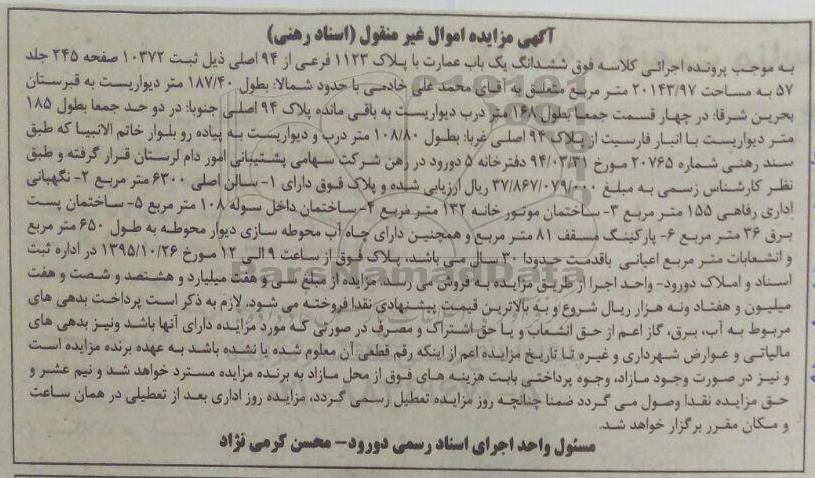 آگهی مزایده اموال غیر منقول (اسناد رهنی)
به موجب پرونده اجرائی کلاسه فوق ششدانگ یک باب عمارت با پلاک ۱۱۲۳ فرعی از ۹۴ اصلی ذیل ثبت ۱۰۳۷۲ صفحه ۲۴۵ جلد
۵۷ به مساحت ۲۰۱۴۳/۹۷ متر مربع متعلق به آقای محمد علی خادمی با حدود شمالا: بطول ۱۸۷/۴۰ متر دیواریست به قبرستان
بحرین شرقا: در چهار قسمت جمعا بطول ۱۶۸ متر درب دیواریست به باقی مانده پلاک ۹۴ اصلی جنوبا: در دو حد جمعا بطول ۱۸۵
متر دیواریست با انبار فارسیت از پلاک ۹۴ اصلی غربا: بطول ۱۰۸/۸۰ متر درب و دیواریست به پیاده رو بلوار خاتم الانبیا که طبق
سند رهنی شماره ۲۰۷۶۵ مورخ ۹۴/۰۳/۳۱ دفترخانه ۵ دورود در رهن شرکت سهامی پشتیبانی امور دام لرستان قرار گرفته و طبق
نظر کارشناس رسمی به مبلغ ۳۷/۸۶۷/۰۷۹/۰۰۰ ریال ارزیابی شده و پلاک فوق دارای ۱- سالن اصلی ۶۳۰۰ متر مربع ۲- نگهبانی
اداری رفاهی ۱۵۵ متر مربع ۳- ساختمان موتور خانه ۱۳۲ متر مربع ۴- ساختمان داخل سوله ۱۰۸ متر مربع ۵- ساختمان پست
برق ۳۶ متر مربع ۶- پارکینگ مسقف ۸۱ متر مربع و همچنین دارای چاه آب محوطه سازی دیوار محوطه به طول ۶۵۰ متر مربع
و انشعابات متر مربع اعیانی باقدمت حدودا ۳۰ سال می باشد، پلاک فوق از ساعت ۹ الی ۱۲ مورخ ۱۳۹۵/۱۰/۲۶ در اداره ثبت
اسناد و املاک دورود- واحد اجرا از طریق مزایده به فروش می رسد. مزایده از مبلغ سی و هفت میلیارد و هشتصد و شصت و هفت
میلیون و هفتاد ونه هزار ریال شروع و به بالاترین قیمت پیشنهادی نقدا فروخته می شود، لازم به ذکر است پرداخت بدهی های
مربوط به آب، برق، گاز اعم از حق انشعاب و یا حق اشتراک و مصرف در صورتی که مورد مزایده دارای آنها باشد ونیز بدهی های
مالیاتی و عوارض شهرداری و غیره تا تاریخ مزایده اعم از اینکه رقم قطعی آن معلوم شده یا نشده باشد به عهده برنده مزایده است
و نیز در صورت وجود مازاد، وجوه پرداختی بابت هزینه های فوق از محل مازاد به برنده مزایده مسترد خواهد شد و نیم عشر و
حق مزایده نقدا وصول می گردد ضمنا چنانچه روز مزایده تعطیل رسمی گردد، مزایده روز اداری بعد از تعطیلی در همان ساعت
و مکان مقرر برگزار خواهد شد.
مسئول واحد اجرای اسناد رسمی دورود- محسن کرمی نژاد
ParsNamadData